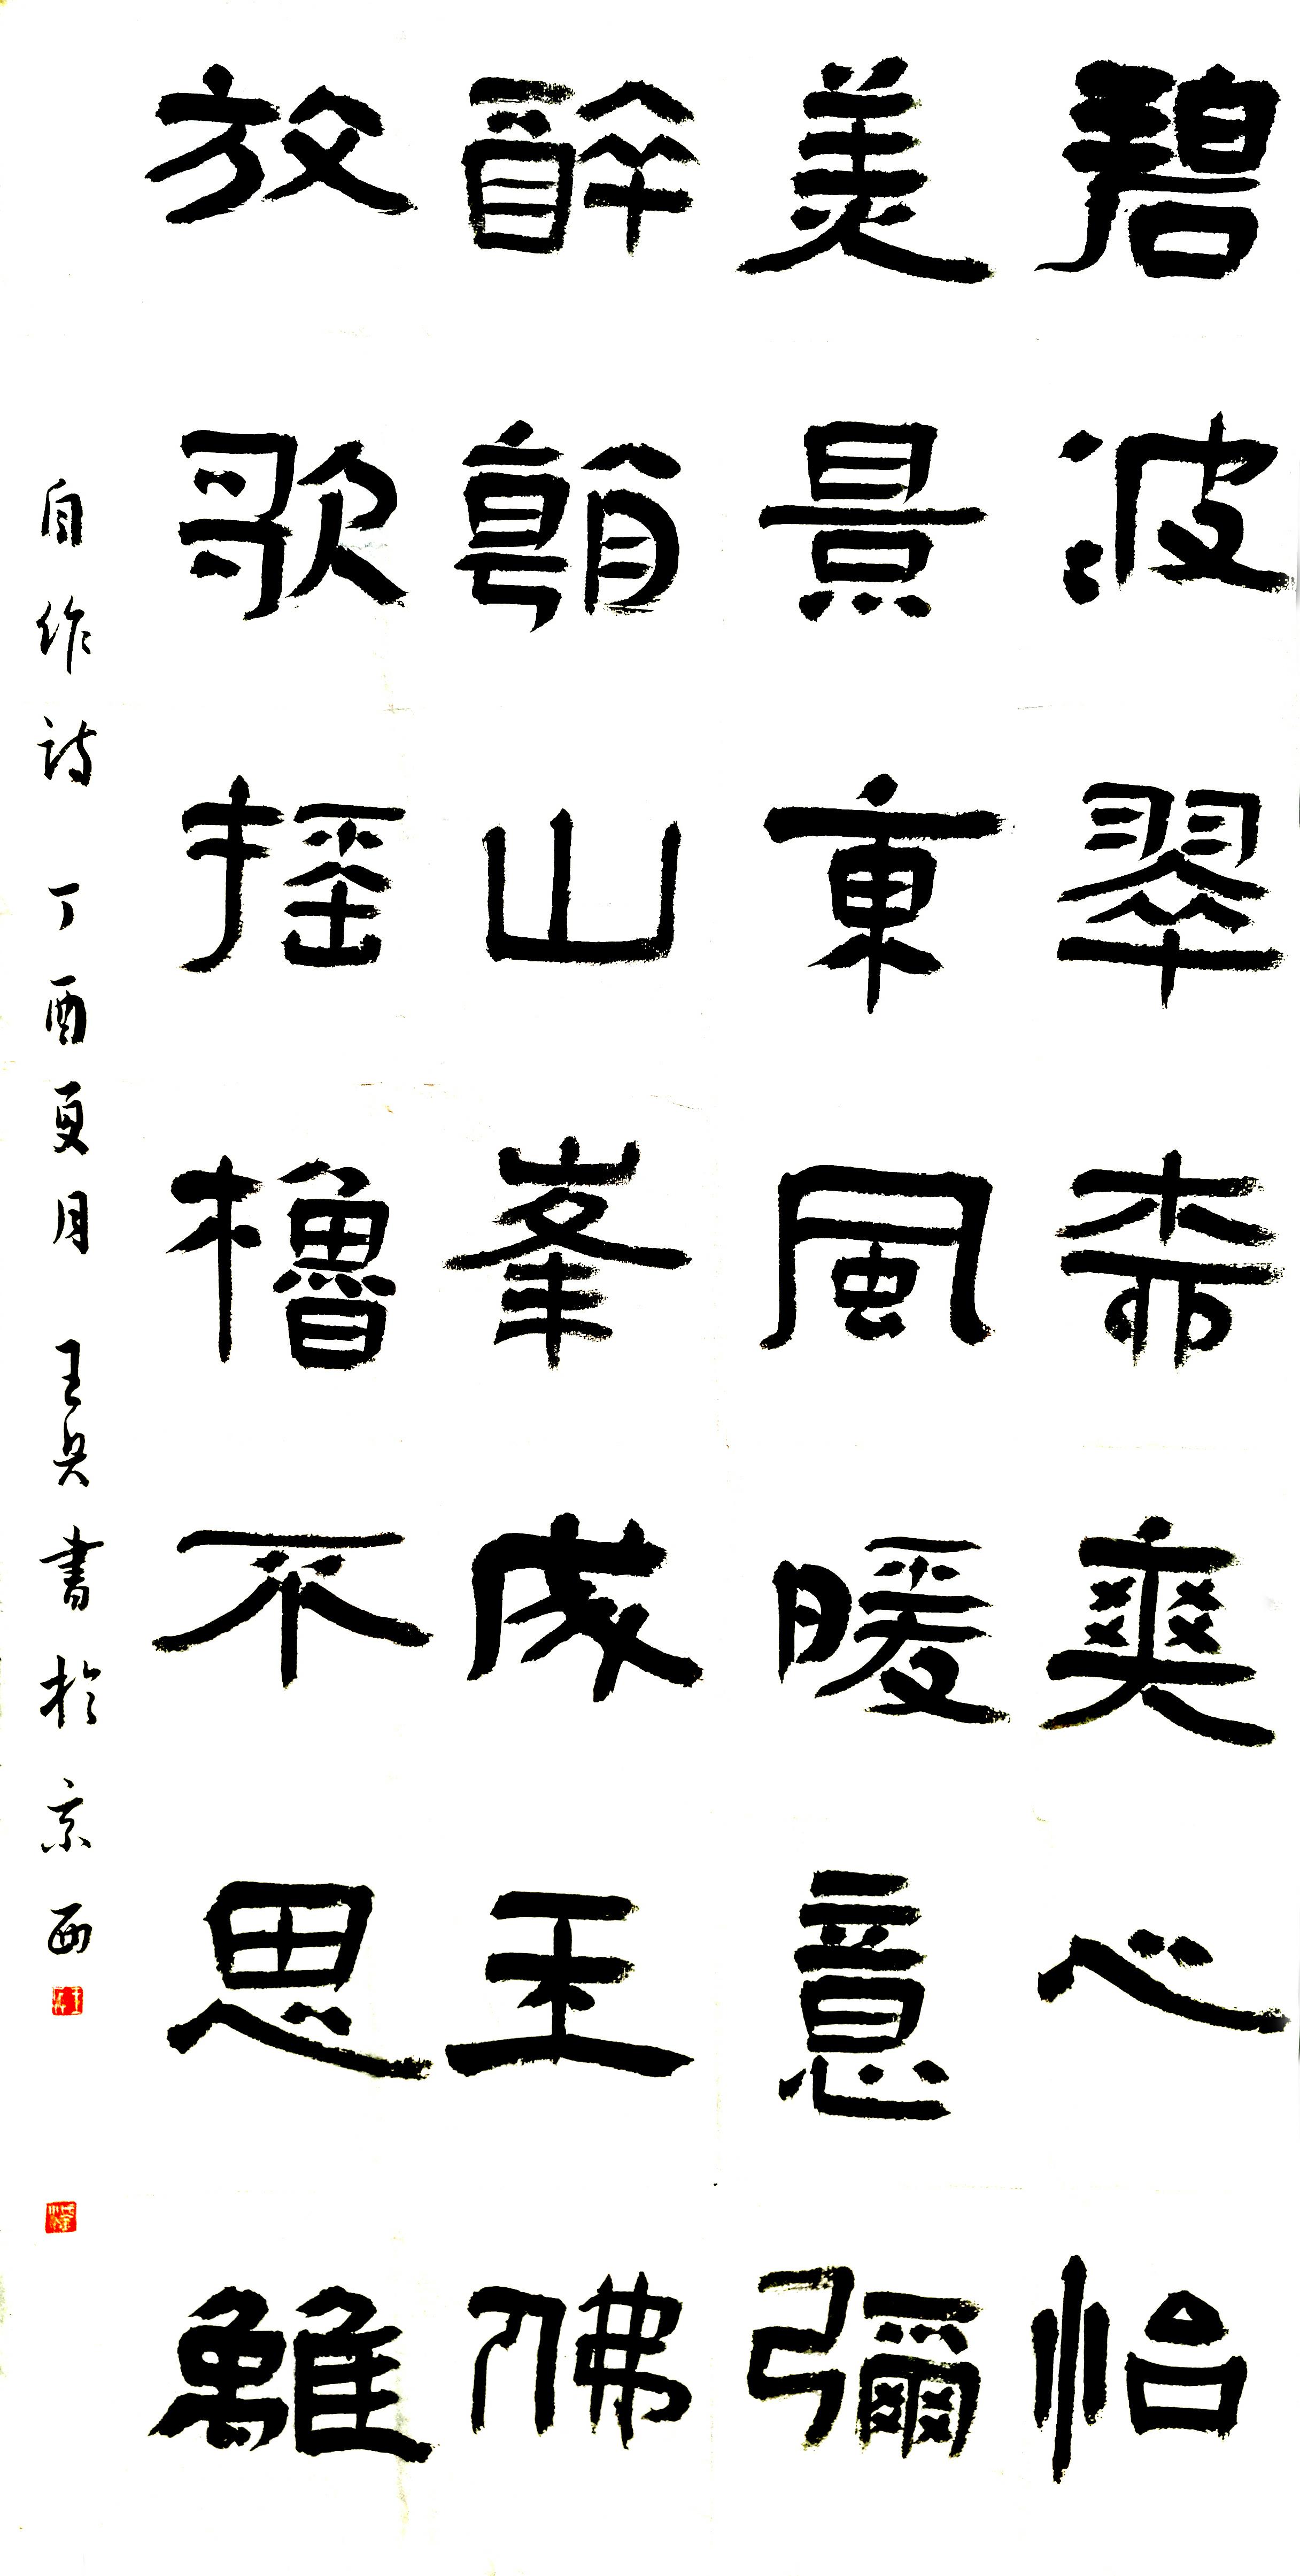 碧波翠柳爽心怡
美景東風暖意彌
醉朝山峯成玉佛
放歌搖櫓不思離
自作詩 丁酉夏月 王兵書於京西